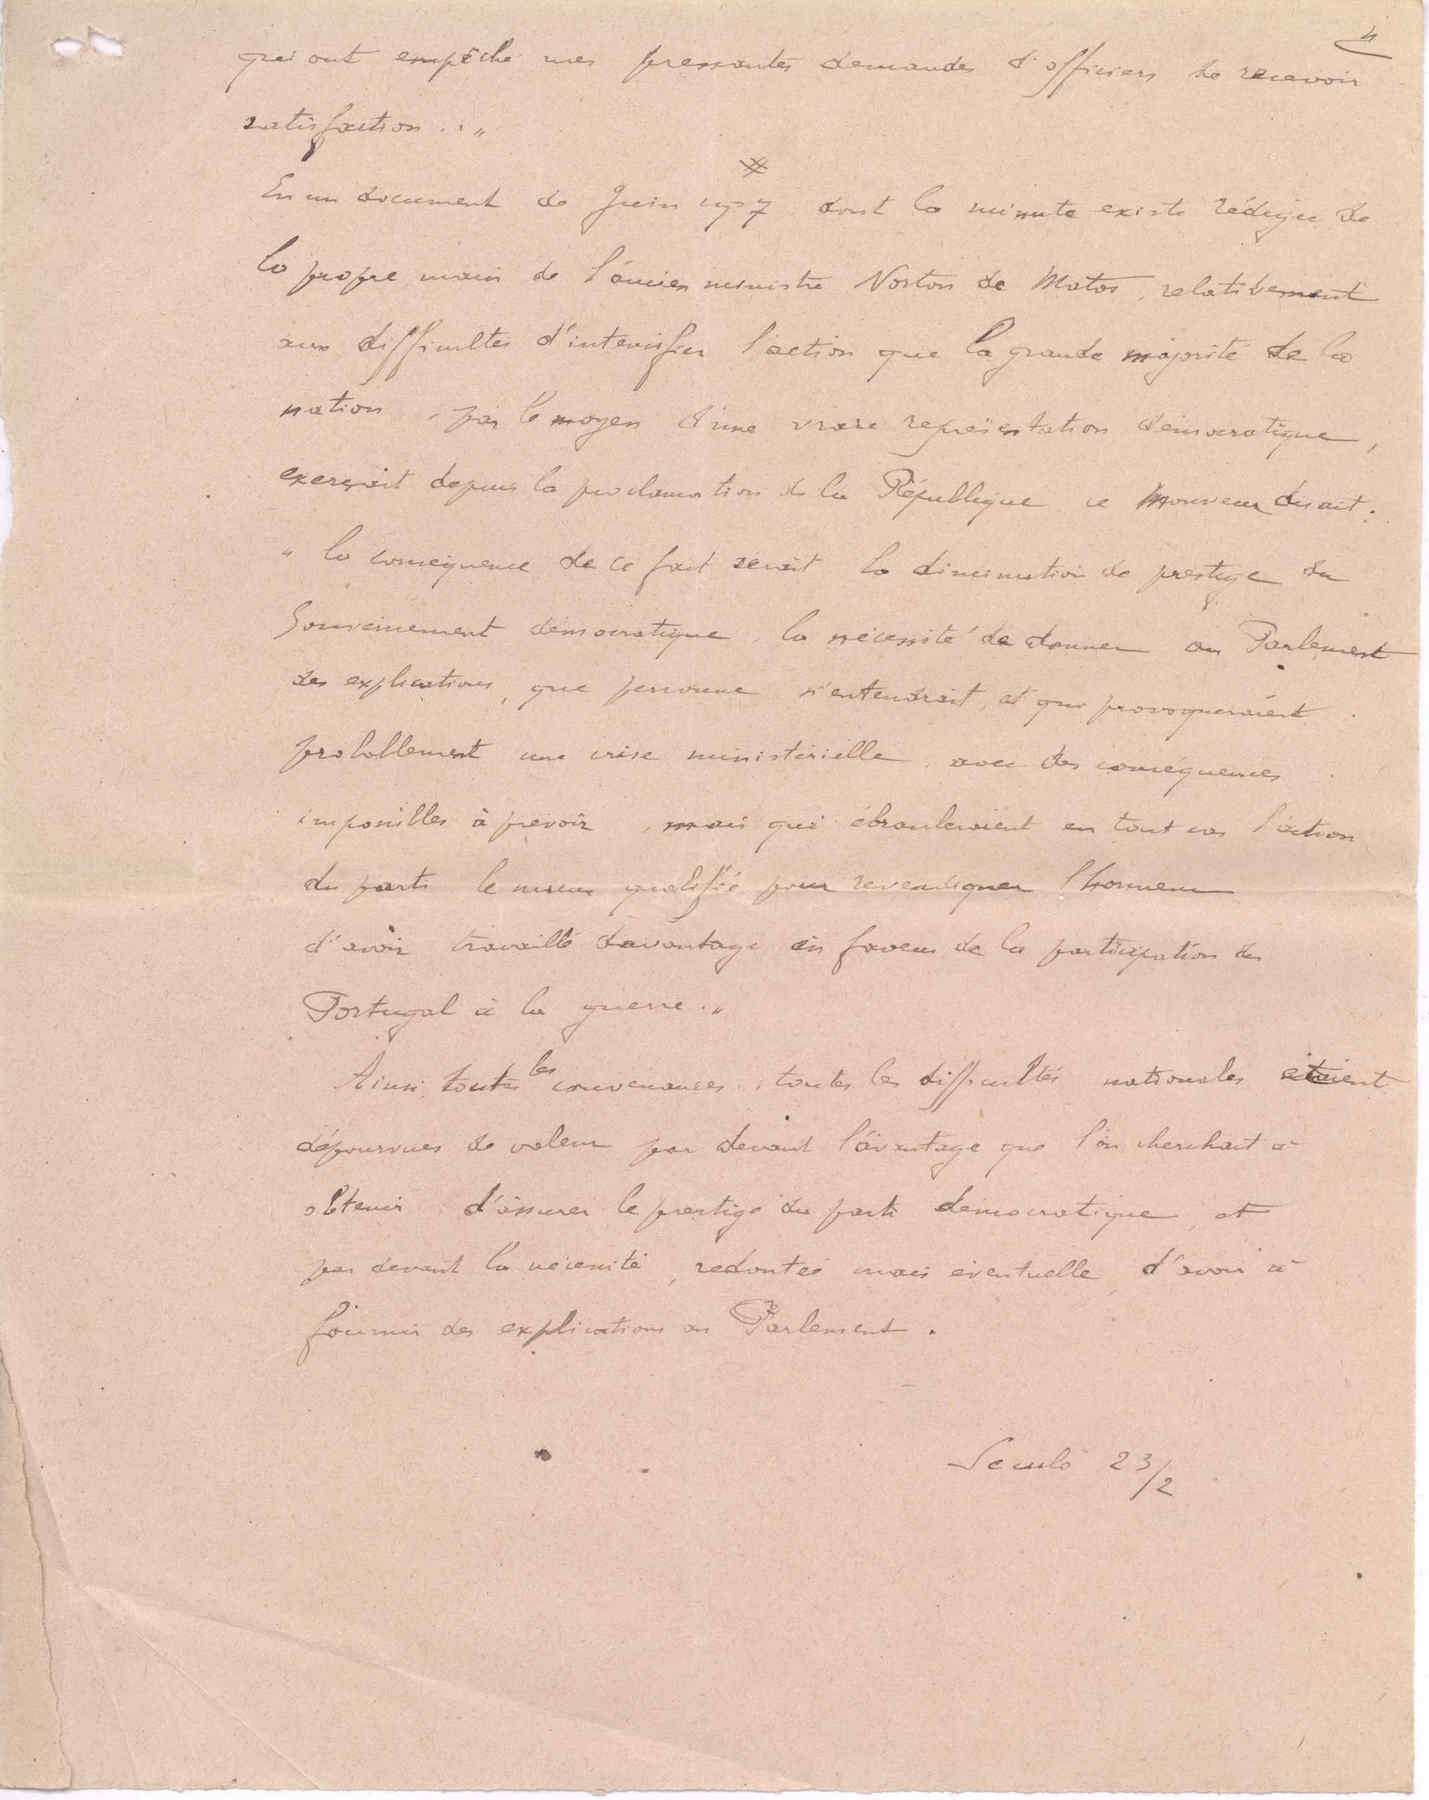 4
qui ont empêché mes pressantes demandes d'officiers de recevoir
satisfaction . . „
En un document de Juin 1917 dont la minute existe rédigée de
la propre main de l'ancien ministre Norton de Matos, relativement
aux difficultés d'intensifier l'action que la grande majorité de la
nation, par le moyen d'une vraie représentation démocratique,
exerçait depuis la proclamation de la République ce Monsieur disait :
" la conséquence de ce fait serait la diminution de prestige du
Gouvernement démocratique, la nécessité de donner au Parlement
des explications, que personne n'entendrait, et qui provoqueraient
probablement une crise ministérielle, avec des conséquences
impossibles à prevoir, mais qui ébranleraient en tout cas l'action
du parti le mieux qualifié pour revendiquer l'honneur
d'avoir travaillé davantage en faveur de la participation du
Portugal à la guerre . „
Ainsi toutes les convenances, toutes les difficultés nationales étaient
dépourvues de valeur par devant l'avantage que l'on cherchait à
obtenir d'assurer le prestige du parti démocratique, et
par devant la nécessité, redoutée mais éventuelle, d'avoir à
fournir des explications au Parlement .
Seculo 23/2